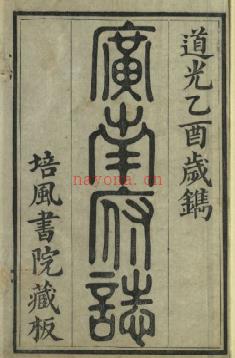 道光乙酉歲鐫
廣南府誌
培風書院藏板
nayona.cn